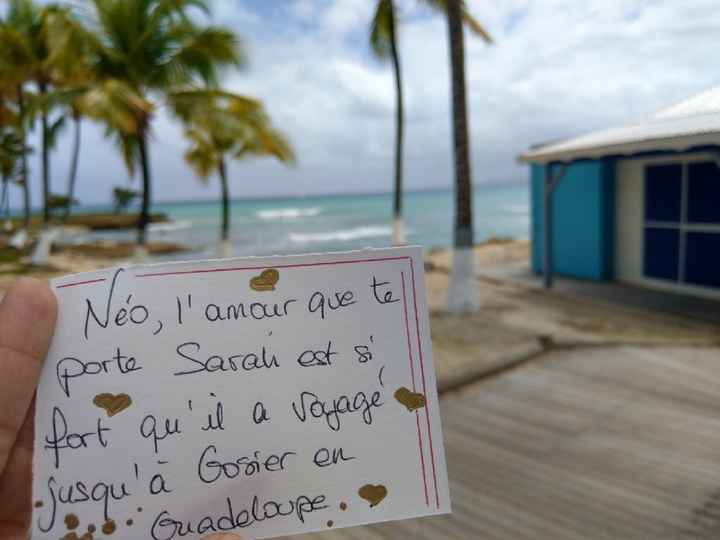 Néo, l'amour que te
porte Sarah est si
fort qu'il a voyagé
jusqu'à Gosier en
Guadeloupe.